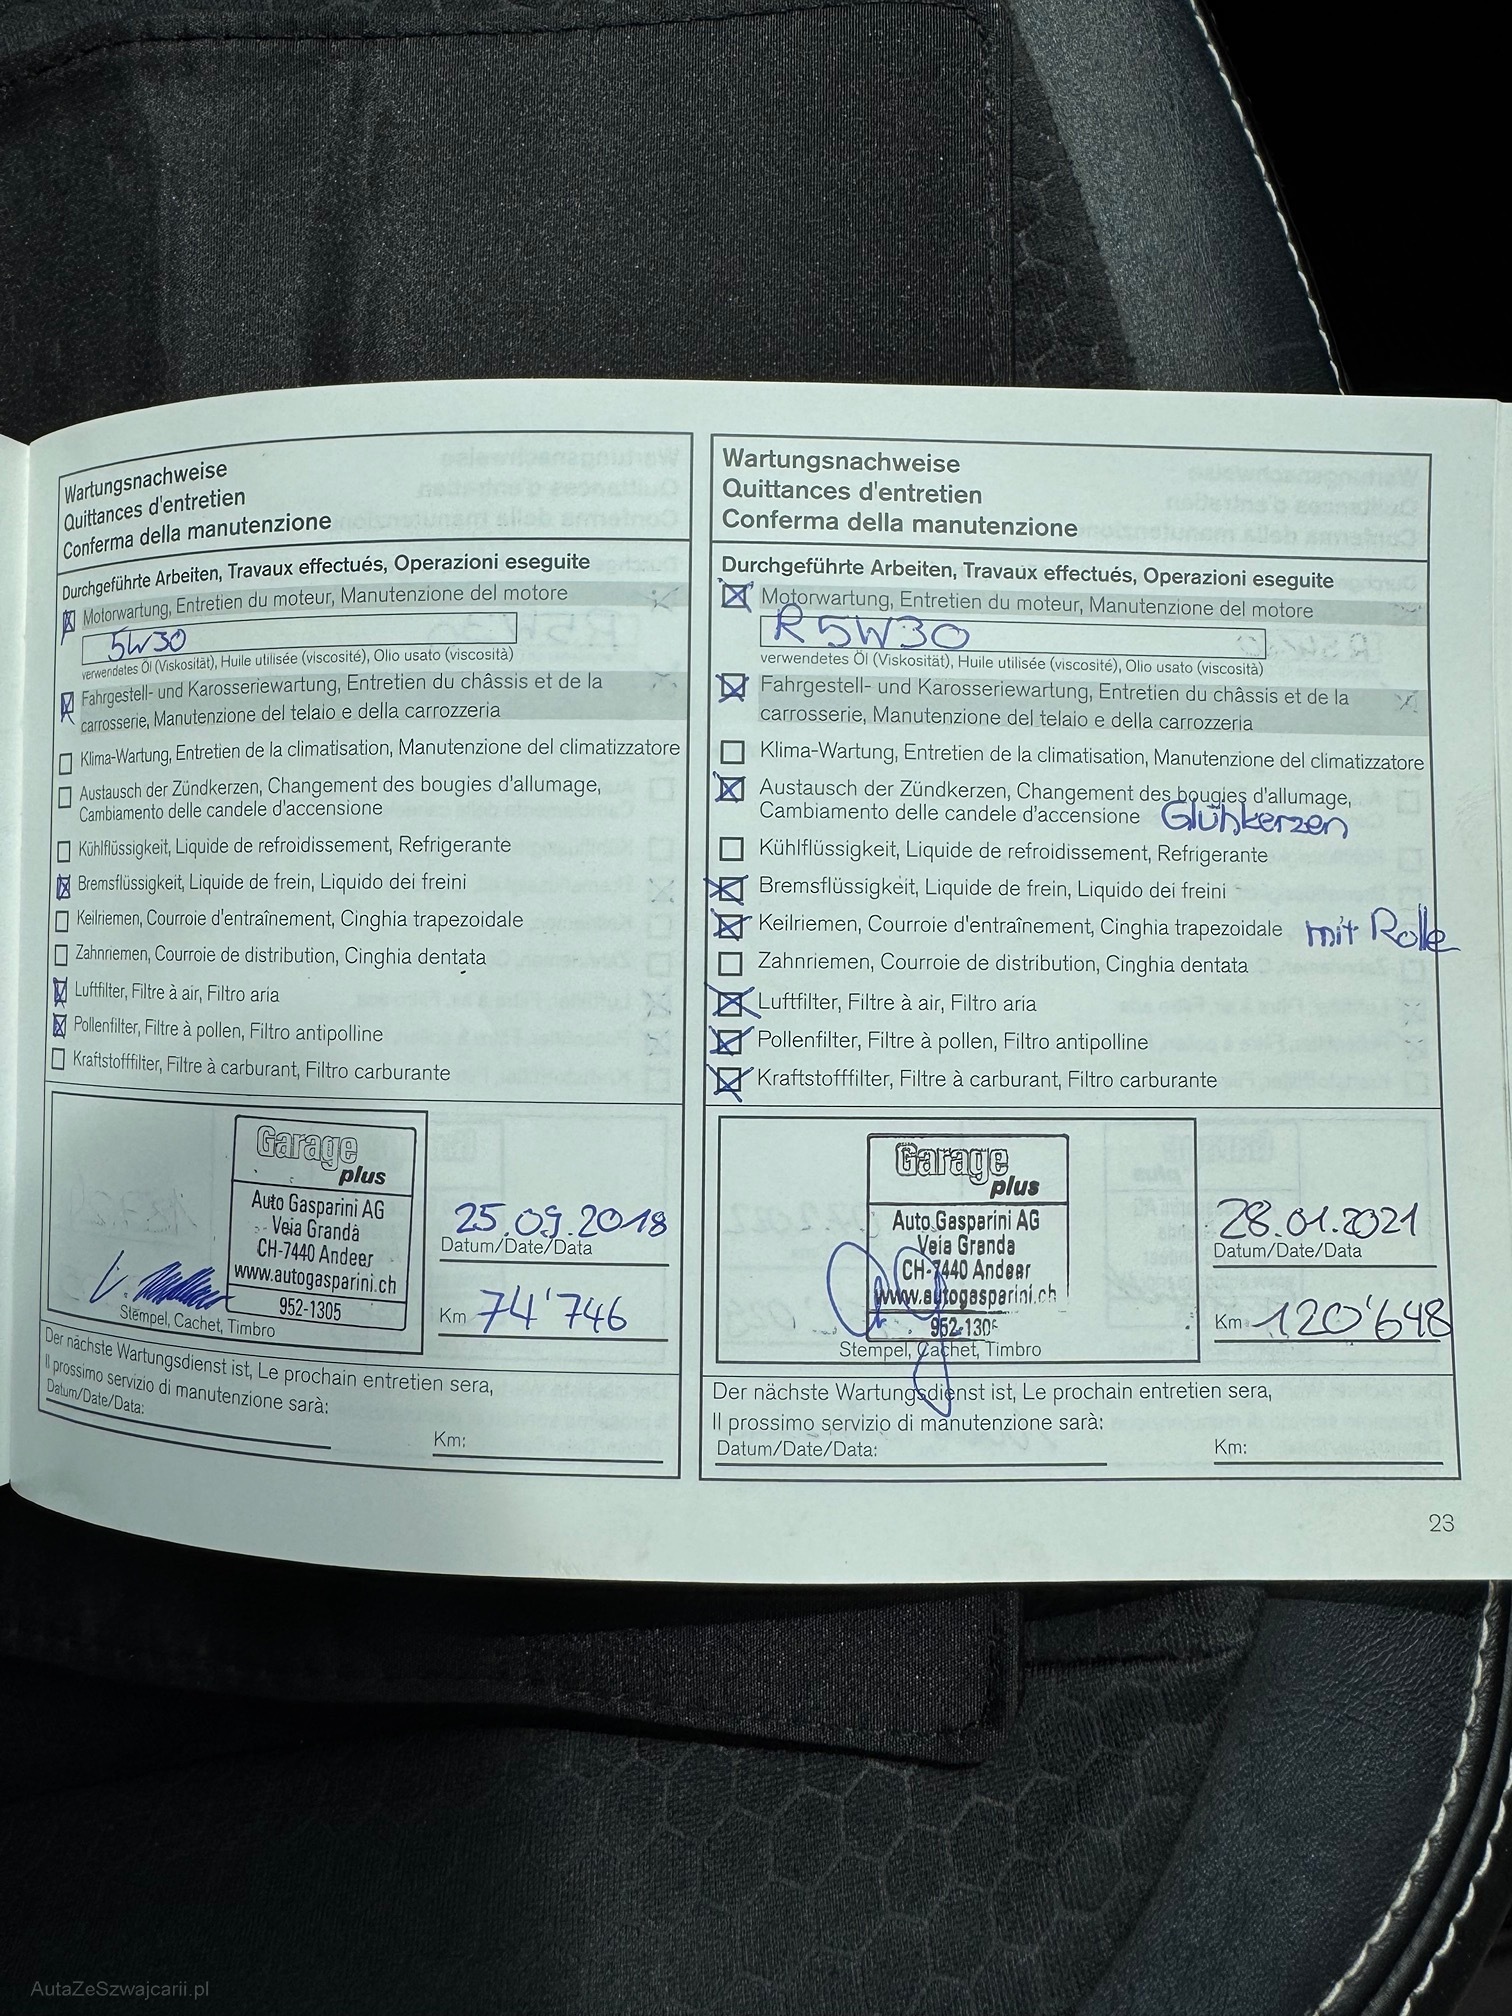 Wartungsnachweise
Quittances d'entretien
Conferma della manutenzione
Durchgeführte Arbeiten, Travaux effectués, Operazioni eseguite
Motorwartung, Entretien du moteur, Manutenzione del motore
5W30
verwendetes Öl (Viskosität), Huile utilisée (viscosité), Olio usato (viscosità)
Fahrgestell- und Karosseriewartung, Entretien du châssis et de la
carrosserie, Manutenzione del telaio e della carrozzeria
Klima-Wartung, Entretien de la climatisation, Manutenzione del climatizzatore
Austausch der Zündkerzen, Changement des bougies d'allumage,
Cambiamento delle candele d'accensione
Kühlflüssigkeit, Liquide de refroidissement, Refrigerante
Bremsflüssigkeit, Liquide de frein, Liquido dei freini
Keilriemen, Courroie d'entraînement, Cinghia trapezoidale
Zahnriemen, Courroie de distribution, Cinghia dentata
Luftfilter, Filtre à air, Filtro aria
Pollenfilter, Filtre à pollen, Filtro antipolline
Kraftstofffilter, Filtre à carburant, Filtro carburante
Garage
plus
Auto Gasparini AG
Veia Granda
CH-7440 Andeer
www.autogasparini.ch
952-1305
Stempel, Cachet, Timbro
25.09.2018
Datum/Date/Data
Km 74'746
Der nächste Wartungsdienst ist, Le prochain entretien sera,
Il prossimo servizio di manutenzione sarà:
Datum/Date/Data:
Km:
Wartungsnachweise
Quittances d'entretien
Conferma della manutenzione
Durchgeführte Arbeiten, Travaux effectués, Operazioni eseguite
Motorwartung, Entretien du moteur, Manutenzione del motore
R 5W30
verwendetes Öl (Viskosität), Huile utilisée (viscosité), Olio usato (viscosità)
Fahrgestell- und Karosseriewartung, Entretien du châssis et de la
carrosserie, Manutenzione del telaio e della carrozzeria
Klima-Wartung, Entretien de la climatisation, Manutenzione del climatizzatore
Austausch der Zündkerzen, Changement des bougies d'allumage,
Cambiamento delle candele d'accensione Glühkerzen
Kühlflüssigkeit, Liquide de refroidissement, Refrigerante
Bremsflüssigkeit, Liquide de frein, Liquido dei freini
Keilriemen, Courroie d'entraînement, Cinghia trapezoidale mit Rolle
Zahnriemen, Courroie de distribution, Cinghia dentata
Luftfilter, Filtre à air, Filtro aria
Pollenfilter, Filtre à pollen, Filtro antipolline
Kraftstofffilter, Filtre à carburant, Filtro carburante
Garage
plus
Auto Gasparini AG
Veia Granda
CH-7440 Andeer
www.autogasparini.ch
952-130
Stempel, Cachet, Timbro
28.01.2021
Datum/Date/Data
Km 120'648
Der nächste Wartungsdienst ist, Le prochain entretien sera,
Il prossimo servizio di manutenzione sarà:
Datum/Date/Data:
Km:
23
AutaZeSzwajcarii.pl